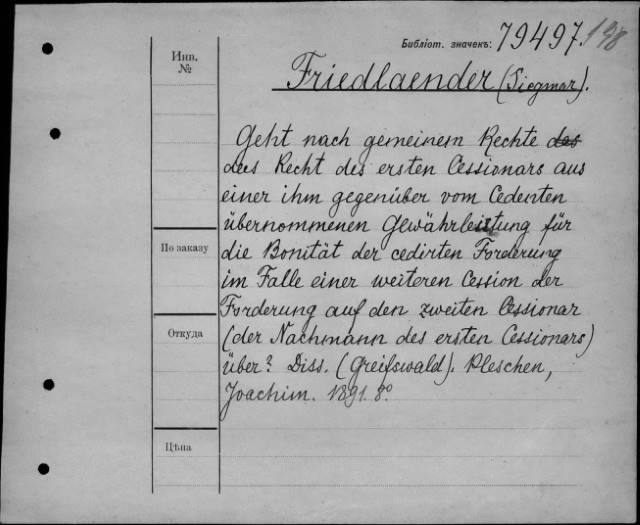 Инв. №
Библіот. значекъ: 79497/198
Friedlaender (Siegmar).
Geht nach gemeinem Rechte das
das Recht des ersten Cessionars aus
einer ihm gegenüber vom Cedenten
übernommenen Gewährleistung für
die Bonität der cedirten Forderung
По заказу
im Falle einer weiteren Cession der
Forderung auf den zweiten Cessionar
Откуда
(der Nachmann des ersten Cessionars)
über? Diss. (Greifswald). Pleschen,
Joachim. 1891. 8°.
Цѣна